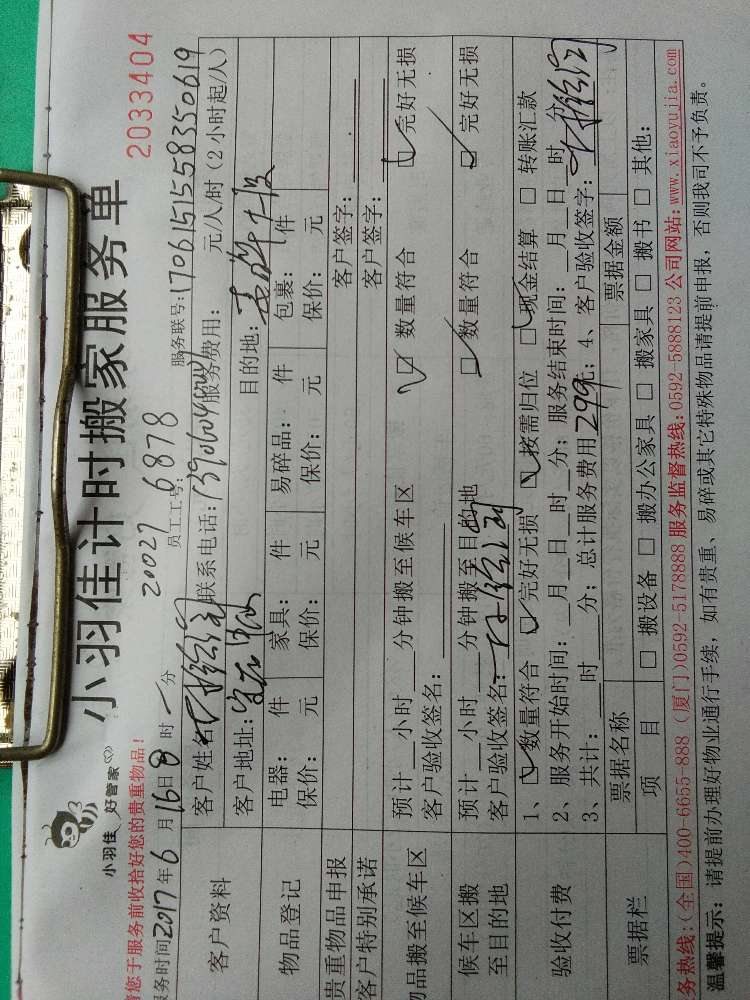 小羽佳 好管家
小羽佳计时搬家服务单
2033404
请您于服务前收拾好您的贵重物品!
20027 6878
服务时间2017年6月16日8时 分 员工工号: 服务联号:17061515583506 19
客户资料
客户姓名 联系电话: 服务费用: 元/人/时(2小时起/人)
客户地址: 目的地:
物品登记
电器: 件 家具: 件 易碎品: 件 包裹: 件
保价: 元 保价: 元 保价: 元 保价: 元
贵重物品申报 客户签字:
客户特别承诺 客户签字:
物品搬至候车区
预计 小时 分钟搬至候车区 ☑ 数量符合 ☑ 完好无损
客户验收签名:
候车区搬至目的地
预计 小时 分钟搬至目的地 ☑ 数量符合 ☑ 完好无损
客户验收签名:
验收付费
1、☑ 数量符合 ☑ 完好无损 ☑ 按需归位 ☑ 现金结算 □ 转账汇款
2、服务开始时间: 月 日 时 分; 服务结束时间: 月 日 时 分
3、共计: 时 分; 总计服务费用299元; 4、客户验收签字:
票据栏
票据名称 票据金额
项目 □ 搬设备 □ 搬办公家具 □ 搬家具 □ 搬书 □ 其他:
务热线:(全国)400-6655-888 (厦门)0592 5178888 服务监督热线:0592-5888123 公司网站:www.xiaoyujia.com
温馨提示: 请提前办理好物业通行手续,如有贵重、易碎或其它特殊物品请提前申报,否则我司不予负责。